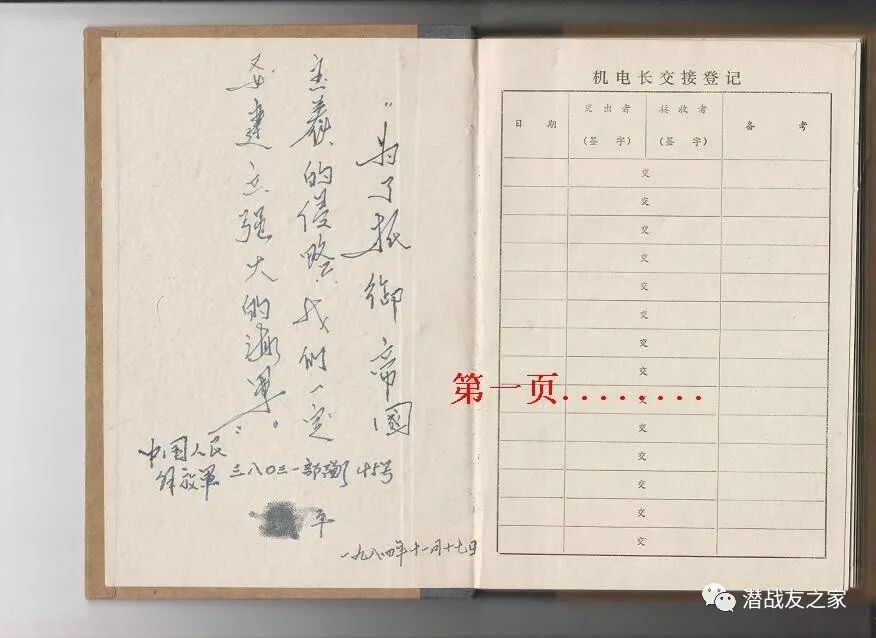 “为了抵御帝國
主義的侵略，我们一定
要建立强大的海軍”。
中国人民
解放軍三八〇三一部隊45号
平
一九八四年十一月十七日
机电长交接登记
日 期 交出者（签 字） 接收者（签 字） 备 考
交
交
交
交
交
交
交
交
交
交
交
交
交
交
第一页........
潜战友之家